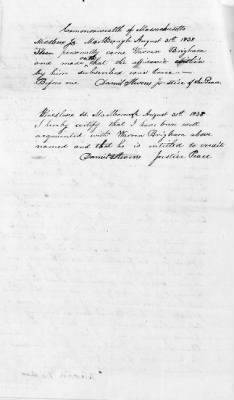 Commonwealth of Massachusetts
Middlesex Ss Marlborough August 20th 1838
Then personally came Warren Brigham
and made oath that the affidavit
by him subscribed was true —
Before me Daniel Stevens Justice of the Peace
Middlesex Ss. Marlborough August 20th 1838
I hereby certify that I have been well
acquainted with Warren Brigham above
named and that he is intitled to credit
Daniel Stevens Justice Peace